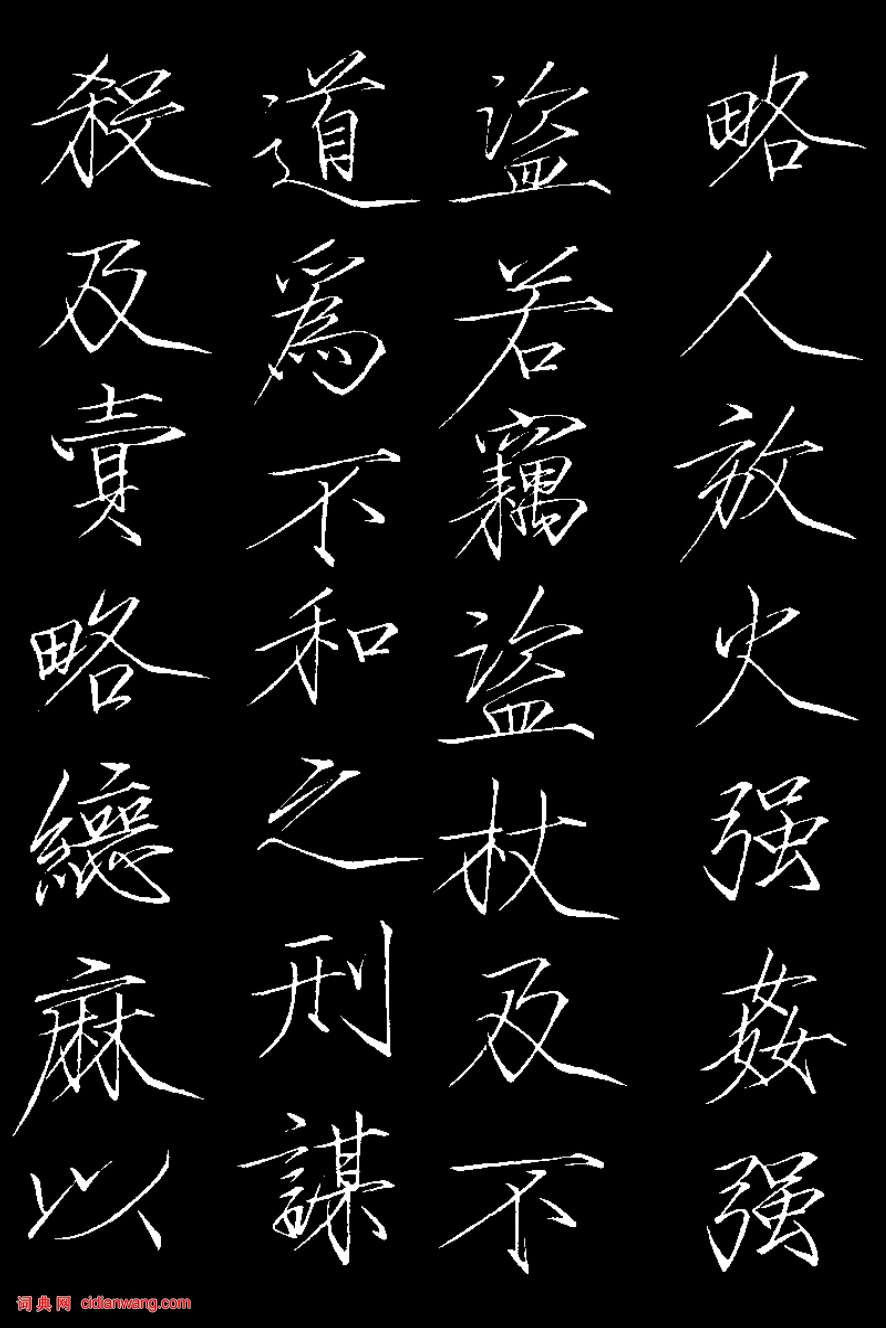 略人放火强姦强
盜若竊盜杖及不
道爲不和之刑謀
殺及賣略緦麻以
词典网 cidianwang.com